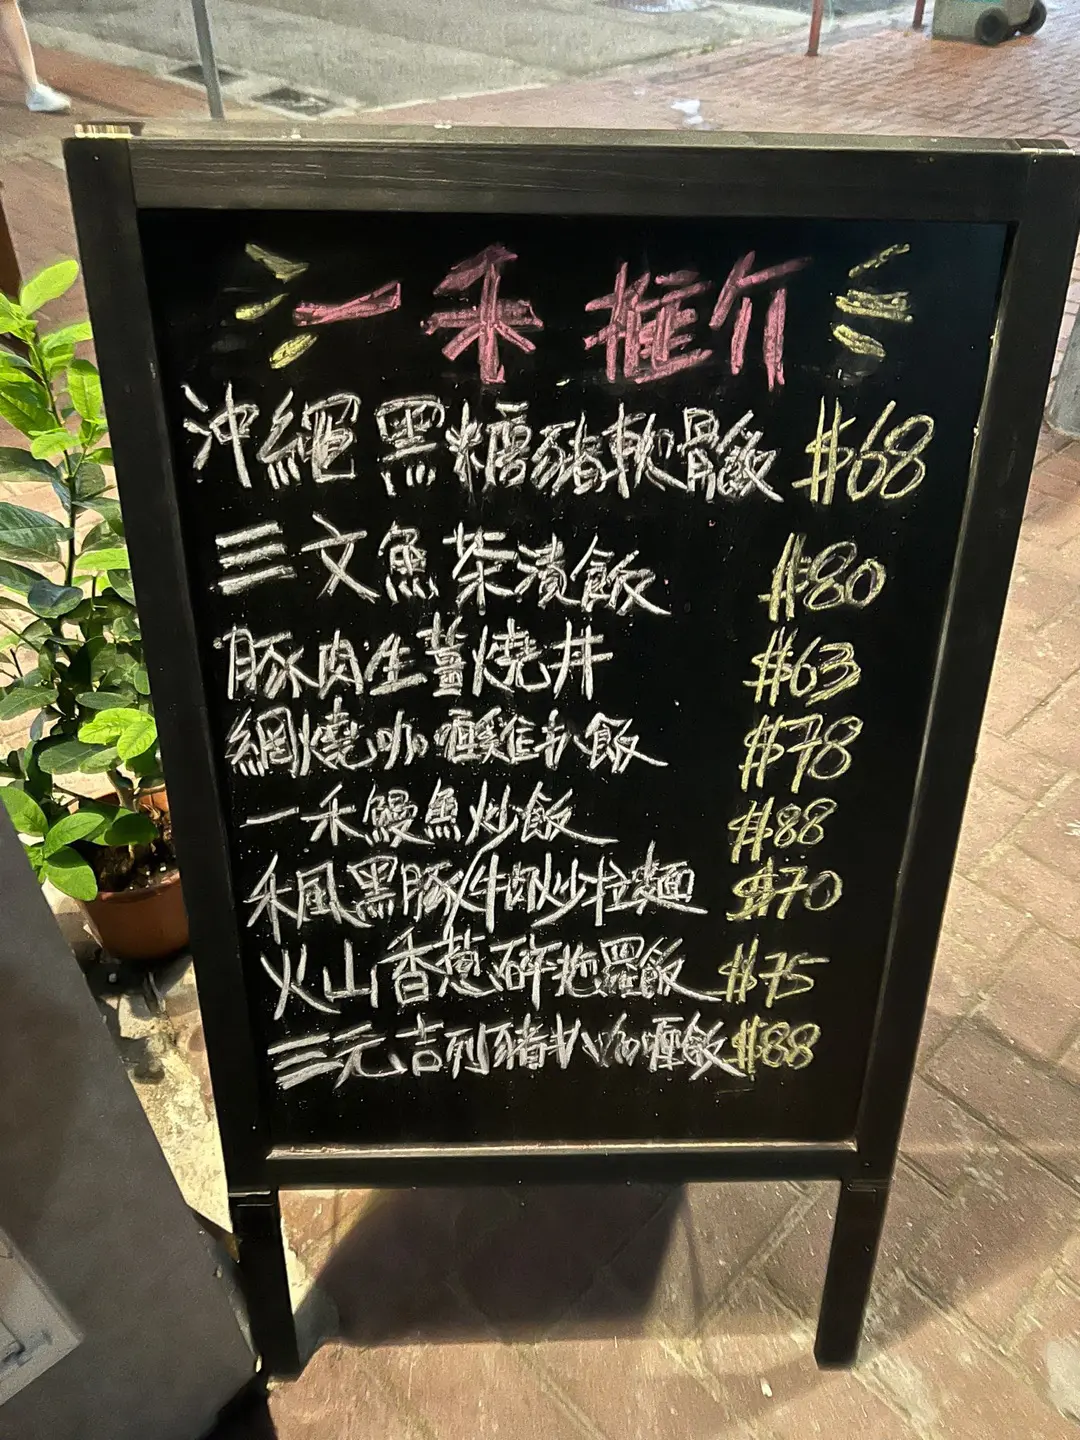 一禾推介
沖繩黑糖豬軟骨飯 $68
三文魚茶漬飯 $80
豚肉生薑燒丼 $63
網燒咖喱雞扒飯 $78
一禾鰻魚炒飯 $88
禾風黑豚/牛肉炒拉麵 $70
火山香蔥碎拖羅飯 $75
三元吉列豬扒咖喱飯 $88